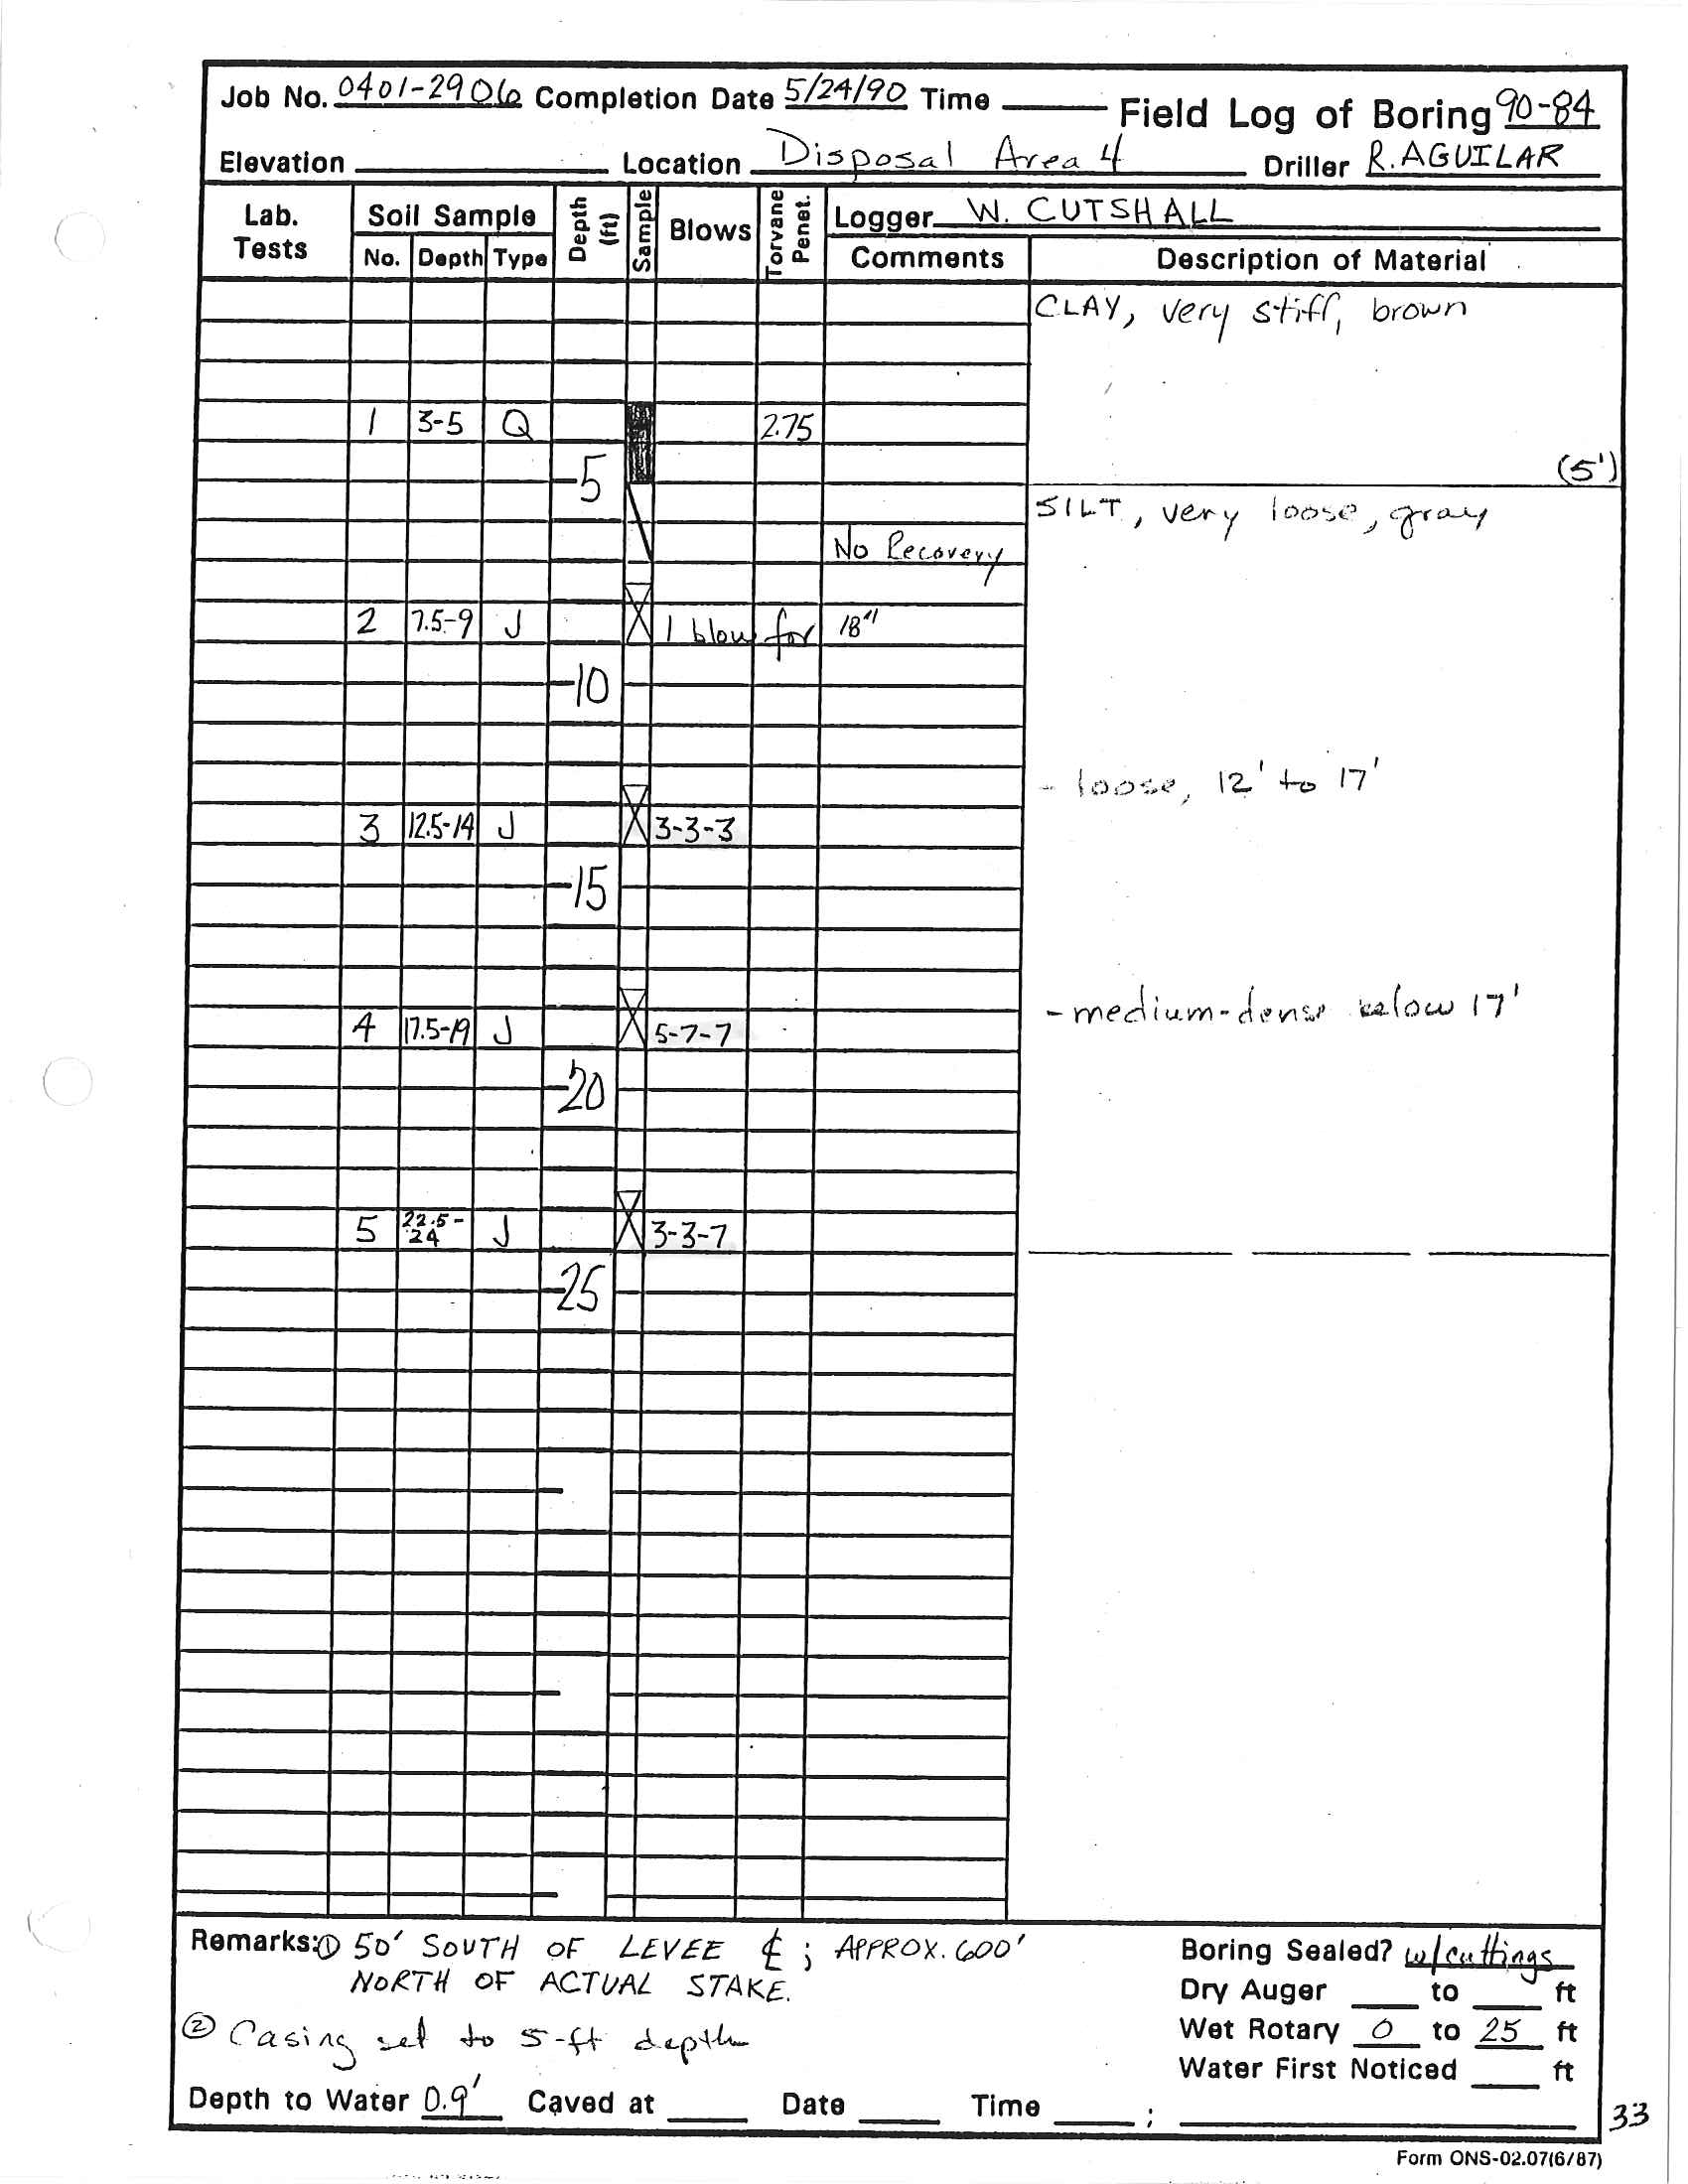 Job No. 0401-2906 Completion Date 5/24/90 Time Field Log of Boring 90-84
Elevation Location Disposal Area 4 Driller R. AGUILAR
Lab. Tests Soil Sample Depth (ft) Sample Blows Torvane Penet. Logger W. CUTSHALL
No. Depth Type Comments Description of Material
CLAY, very stiff, brown
1 3-5 Q 2.75
5 (5')
SILT, very loose, gray
No Recovery
2 7.5-9 J 1 blow for 18"
10
- loose, 12' to 17'
3 12.5-14 J 3-3-3
15
- medium-dense below 17'
4 17.5-19 J 5-7-7
20
5 22.5-24 J 3-3-7
25
Remarks: ① 50' SOUTH OF LEVEE ℄ ; APPROX. 600'
NORTH OF ACTUAL STAKE.
② Casing set to 5-ft depth
Boring Sealed? w/cuttings
Dry Auger to ft
Wet Rotary 0 to 25 ft
Water First Noticed ft
Depth to Water 0.9' Caved at Date Time ;
33
Form ONS-02.07(6/87)